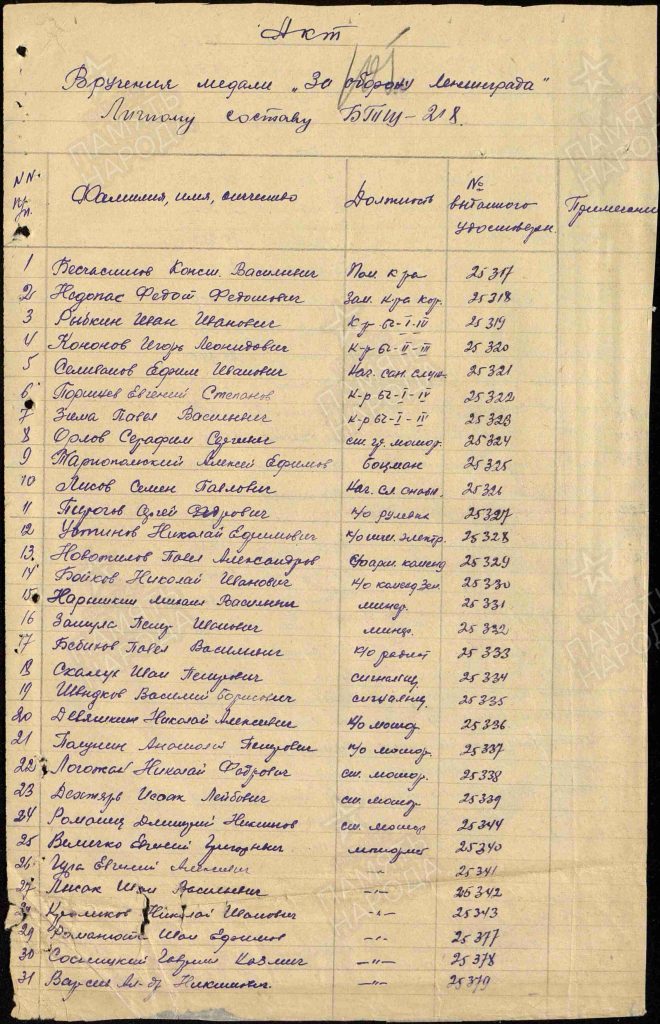 Акт
Вручения медали „За оборону Ленинграда"
Личному составу БТЩ-218.
NN. Фамилия, имя, отчество Должность № выданного удостоверен. Примечание
1 Бесчастнов Конст. Васильевич Пом. к-ра 25317
2 Недопас Федот Федотович Зам. к-ра кор. 25318
3 Рыбкин Иван Иванович К-р бч-I-IV 25319
4 Кононов Игорь Леонидович К-р бч-II-III 25320
5 Селиванов Ефим Иванович Нач. сан. служ. 25321
6 Евгений Степанов К-р бч-I-IV 25322
7 Зима Павел Васильевич К-р бч-I-IV 25323
8 Орлов Серафим ст. гр. мотор. 25324
9 Алексей Ефимов боцман 25325
10 Лисов Семен Павлович Нач. сл. снабж. 25326
11 Пирогов к/о рулевых 25327
12 Устинов Николай Ефимович к/о электр. 25328
13 Новожилов Павел Александров комендор 25329
14 Бойков Николай Иванович к/о коменд. Зен. 25330
15 Нарышкин Михаил Васильевич минер. 25331
16 Петр Иванович минер. 25332
17 Бабинов Павел Васильевич к/о радист 25333
18 Иван Петрович сигнальщ. 25334
19 Шведков Василий Борисович сигнальщ. 25335
20 Девяткин Николай Алексеевич к/о мотор. 25336
21 Полунин Анатолий Петрович к/о мотор. 25337
22 Николай Федорович ст. мотор. 25338
23 Дехтярь Исаак Лейбович ст. мотор. 25339
24 Романец Дмитрий Никитов ст. мотор 25344
25 Величко Евгений Григорьевич моторист 25340
26 Евгений Алексеевич -"- 25341
27 Писак Иван Васильевич -"- 25342
28 Кроликов Николай Иванович -"- 25343
29 Иван Ефимов -"- 25377
30 Сосницкий Гаврил Козьмич -"- 25378
31 Ал-др -"- 25379
ПАМЯТЬ НАРОДА
ПАМЯТЬ НАРОДА
ПАМЯТЬ НАРОДА
ПАМЯТЬ НАРОДА